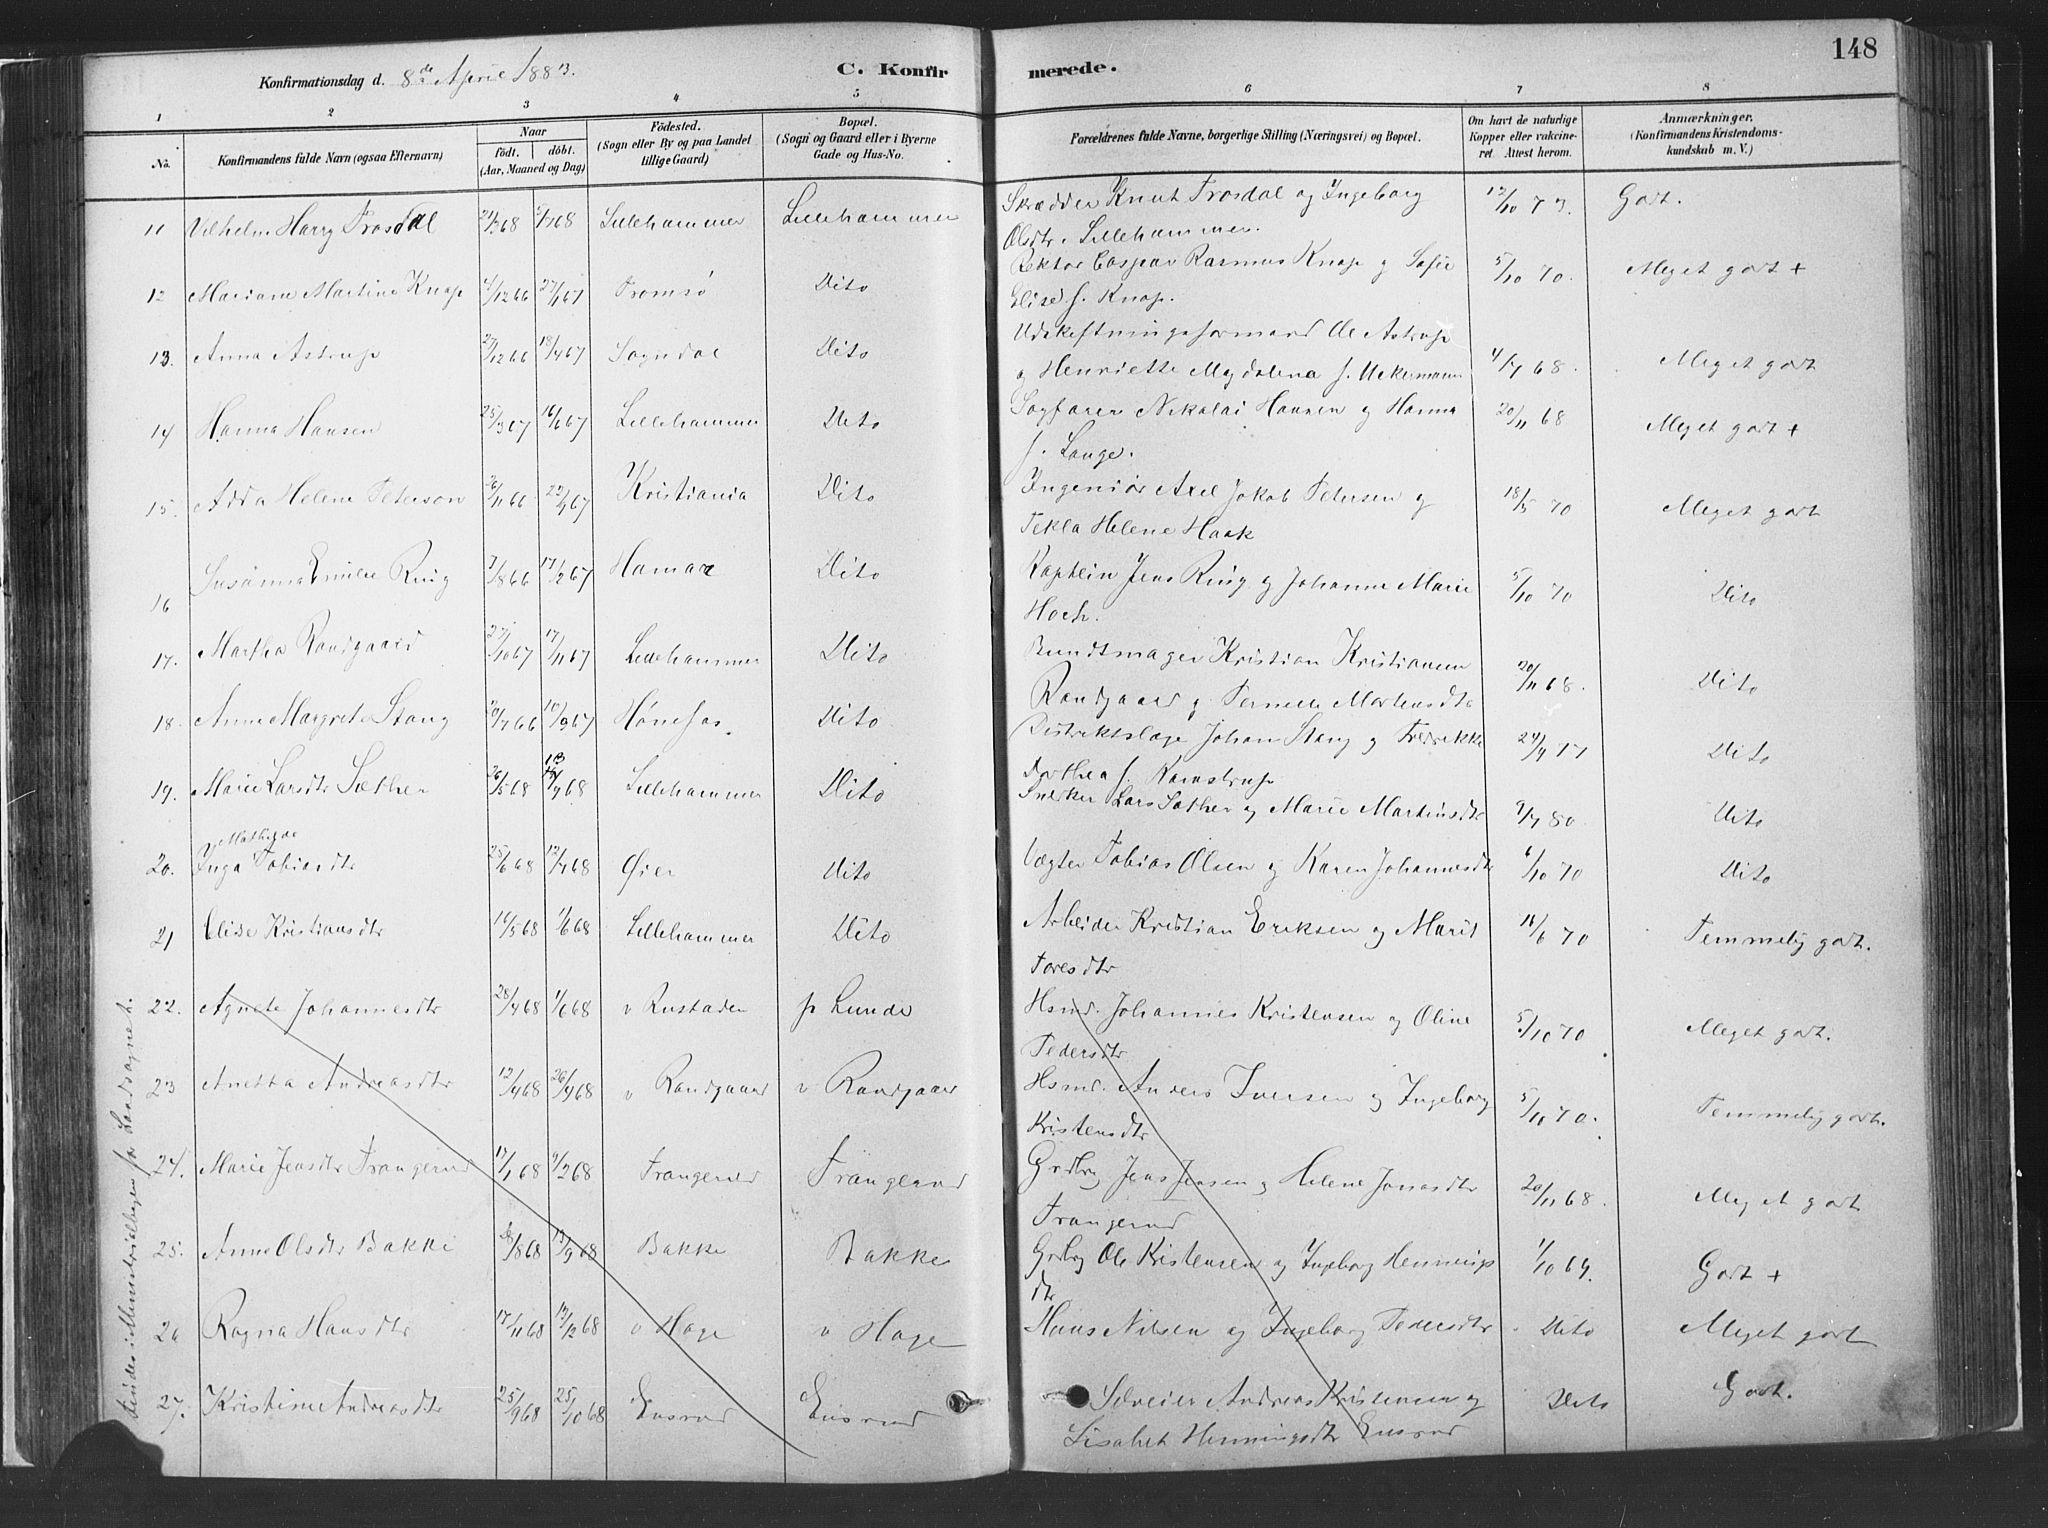 148
Konfirmationsdag d. 8de April 1883.
C. Konfirmerede.
1 2 3 4 5 6 7 8
No.
Konfirmandens fulde Navn (ogsaa Efternavn)
Naar
født. døbt.
(Aar, Maaned og Dag)
Fødested.
(Sogn eller By og paa Landet
tillige Gaard)
Bopæl.
(Sogn og Gaard eller i Byerne
Gade og Hus-No.
Forældrenes fulde Navne, borgerlige Stilling (Næringsvei) og Bopæl.
Om havt de naturlige
Kopper eller vakcine-
ret. Attest herom.
Anmærkninger.
(Konfirmandens Kristendoms-
kundskab m. V.)
11 Vilhelm Harry Trosdal 21/3 68 Lillehammer Lillehammer Skrædder Knut Trosdal og Ingeborg 12/10 73. Godt.
Olsdtr. Lillehammer.
12 Mariane Martine Knap 4/12 66 27/1 67 Tromsø Dito Rektor Caspar Rasmus Knap og Sofie 5/10 70. Meget godt +
Elise f. Knap.
13. Anna Astrup 27/12 66 18/4 67 Sogndal Dito Udskiftningsformand Ole Astrup
og Henriette Magdalena f. Uckermann 4/7 68. Meget godt
14 Hanna Hansen 25/3 67 16/6 67 Lillehammer Dito Sagfører Nikolai Hansen og Hanna 20/11 68 Meget godt +
f. Lange.
15. Adda Helene Peterson 26/11 66 22/9 67 Kristiania Dito Ingeniør Axel Jakob Petersen og 18/5 70 Meget godt
Tekla Helene Haak
16 Susanna Emilie Ring 7/8 66 17/2 67 Hamar Dito Kaptein Jens Ring og Johanne Marie 5/10 70 Dito
Hoch.
17. Martha Randgaard 27/10 67 17/11 67 Lillehammer Dito Bundtmager Kristian Kristiansen 20/11 68. Dito
Randgaard og Pernelle Mortensdtr
18. Anne Margrete Stang 20/7 66 10/9 67 Hønefos. Dito Distriktslæge Johan Stang og Fredrikke 24/9 77 Dito
Dorthea f. Kamstrup
19. Marie Larsdtr Sæther 26/5 68 Lillehammer Dito Snedker Lars Sæther og Marie Martinsdtr 9/7 80. Dito
20. Inga Mathilde Tobiasdtr 25/6 68 12/7 68 Øier Dito Vægter Tobias Olsen og Karen Johannesdtr 6/10 70 Dito
21 Elise Kristiansdtr 16/5 68 1/6 68 Lillehammer Dito Arbeider Kristian Eriksen og Marit 16/6 70 Temmelig godt.
Toresdtr
22. Agnete Johannesdtr 28/4 68 1/6 68 v Rustaden p Lunde Hsmd. Johannes Kristensen og Oline 5/10 70 Meget godt.
Pedersdtr
23 Anetta Andreasdtr 12/4 68 26/4 68 v Randgaard v Randgaard Hsmd. Anders Iversen og Ingeborg 5/10 70. Temmelig godt.
Kristensdtr
24. Marie Jensdtr Trangerud 17/1 68 9/2 68 Trangerud Trangerud Grdbr Jens Jensen og Helene Jonasdtr 20/11 68. Meget godt
Trangerud
25. Anne Olsdtr Bakke 28/8 68 13/9 68 Bakke Bakke Grdbr Ole Kristensen og Ingeborg Hennings 1/10 69. Godt +
dtr
26 Ragna Hansdtr 17/11 68 13/12 68 v Hage v Hage Hans Nilsen og Ingeborg Pedersdtr Dito Meget godt
27. Kristine Andreasdtr 25/9 68 25/10 68 Ensrud Ensrud Selveier Andreas Kristensen og Dito Godt.
Lisabet Henningsdtr Ensrud
Findes i Ministerialbogen for Landsognet.